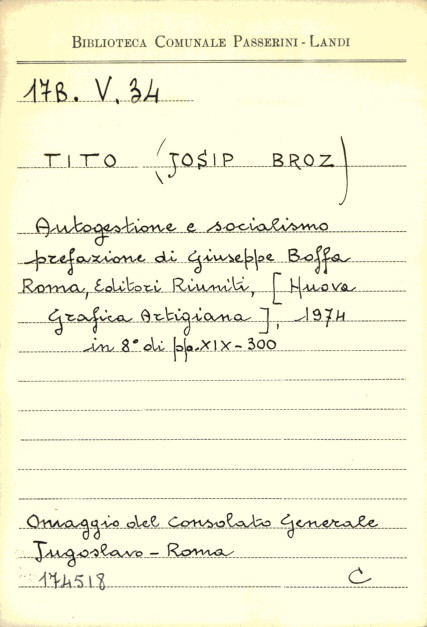 BIBLIOTECA COMUNALE PASSERINI - LANDI
17B. V. 34
TITO (JOSIP BROZ)
Autogestione e socialismo
prefazione di Giuseppe Boffa
Roma, Editori Riuniti, [Nuova
Grafica Artigiana], 1974
in 8° di pp.XIX-300
Omaggio del Consolato Generale
Jugoslavo - Roma
174518 C